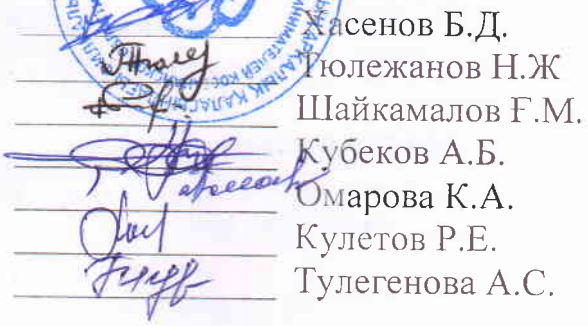 Хасенов Б.Д.
Тюлежанов Н.Ж
Шайкамалов Ғ.М.
Кубеков А.Б.
Омарова К.А.
Кулетов Р.Е.
Тулегенова А.С.